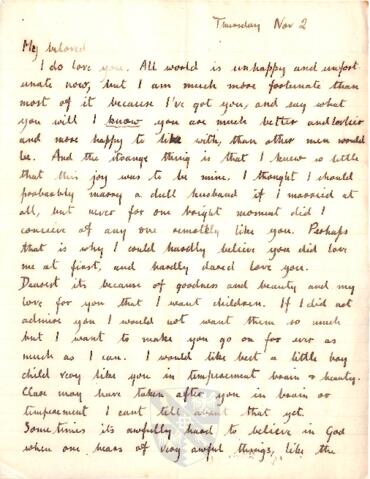 Thursday Nov 2
My beloved
I do love you. All world is unhappy and unfort
unate now, but I am much more fortunate than
most of it because I've got you, and say what
you will I know you are much better and lovlier
and more happy to live with, than other men would
be. And the strange thing is that I knew so little
that this joy was to be mine. I thought I should
probably marry a dull husband if I married at
all, but never for one bright moment did I
conceive of any one remotely like you. Perhaps
that is why I could hardly believe you did love
me at first, and hardly dared love you.
Dearest its because of goodness and beauty and my
love for you that I want children. If I did not
admire you I would not want them so much
but I want to make you go on for ever as
much as I can. I would like best a little boy
child very like you in temperament brain & beauty.
Clare may have taken after you in brain or
temperament I cant tell about that yet.
Sometimes its awfully hard to believe in God
when one hears of very awful things, like the